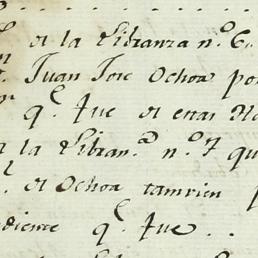 a la Libranza n.º 6
Juan Jose Ochoa po
q.e fue
a la Libran.a n.º 7 qu
Ochoa tamvien p
diente q.e fue . .